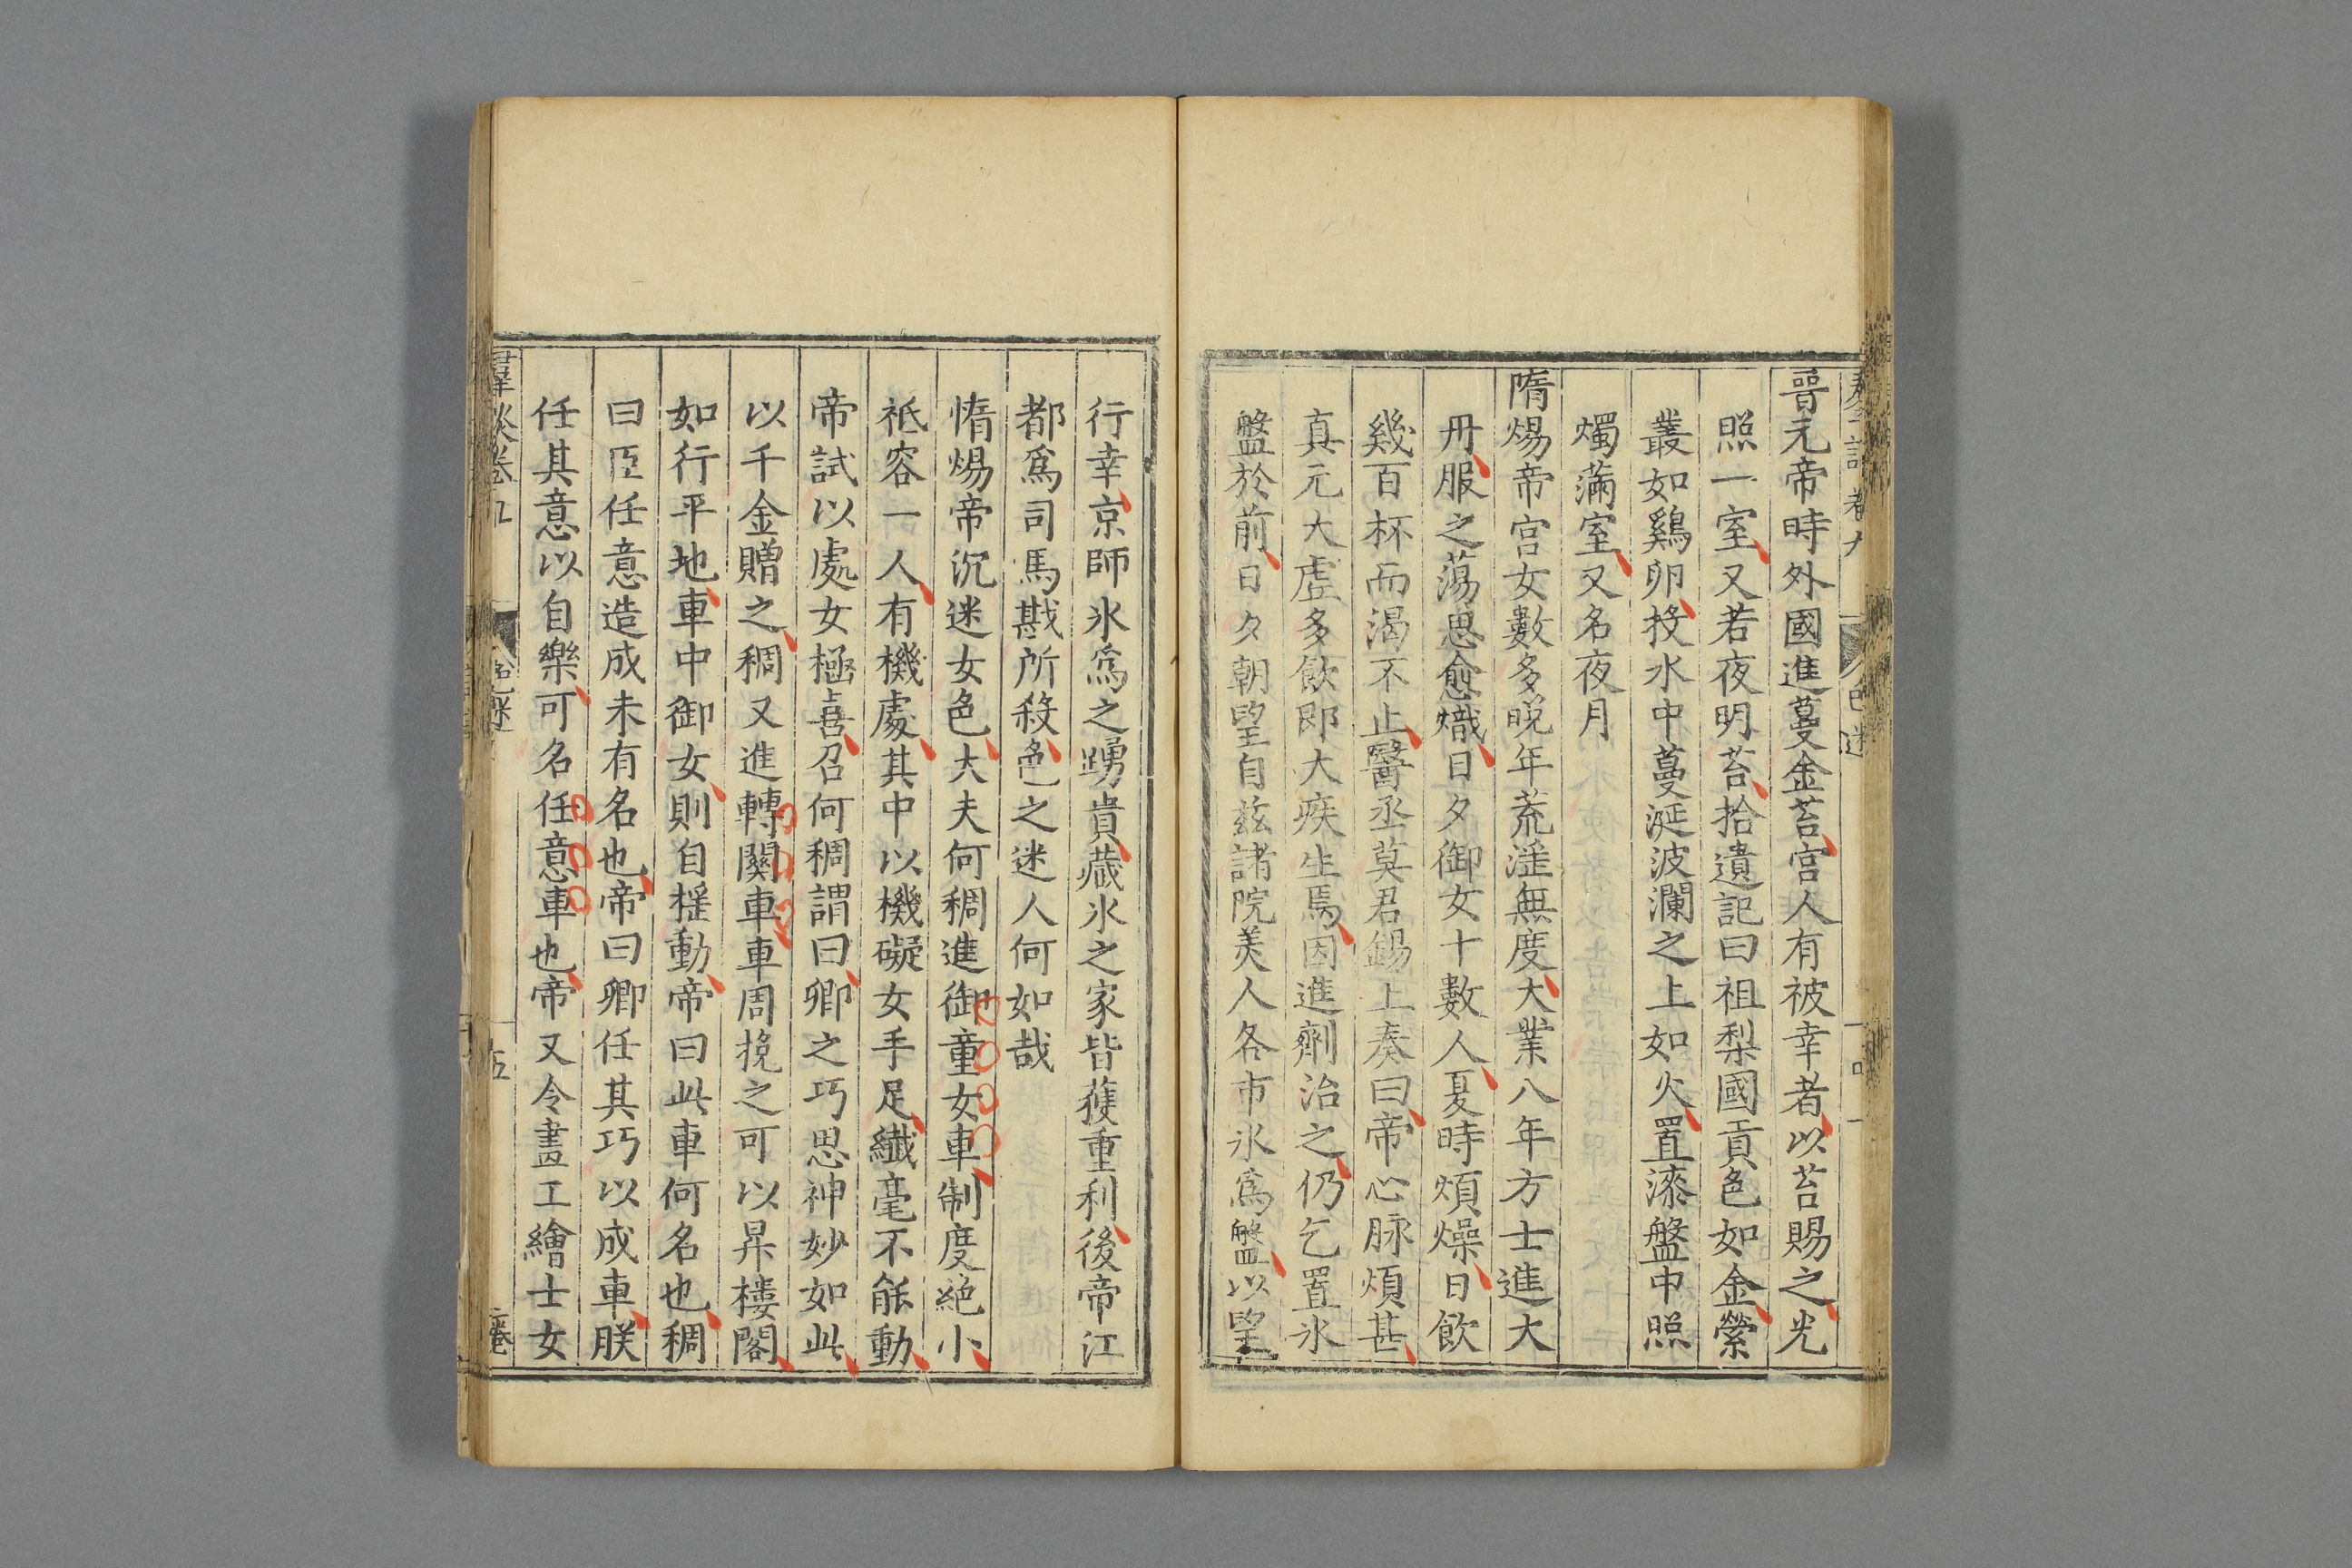 晉元帝時外國進蔓金苔宫人有被幸者以苔賜之光
照一室又若夜明苔拾遺記曰祖梨國貢色如金縈
叢如鷄卵投水中蔓涎波瀾之上如火置漆盤中照
燭滿室又名夜月
隋煬帝宫女數多晚年荒滛無度大業八年方士進大
丹服之蕩思愈熾日夕御女十數人夏時煩燥日飲
幾百杯而渴不止醫丞莫君錫上奏曰帝心脉煩甚
真元大虛多飲即大疾生焉因進劑治之仍乞置氷
盤於前日夕朝望自兹諸院美人各市氷爲盤以望
行幸京師氷爲之踴貴藏氷之家皆蒦重利後帝江
都爲司馬戡所殺色之迷人何如哉
惰煬帝沉迷女色大夫何稠進御童女車制度絕小
祗容一人有機處其中以機礙女手足纎毫不能動
帝試以處女極喜召何稠謂曰卿之巧思神妙如此
以千金贈之稠又進轉關車車周挽之可以昇樓閣
如行平地車中御女則自摇動帝曰此車何名也稠
曰臣任意造成未有名也帝曰卿任其巧以成車朕
任其意以自樂可名任意車也帝又令畫工繪士女
羣談卷九
色迷
五